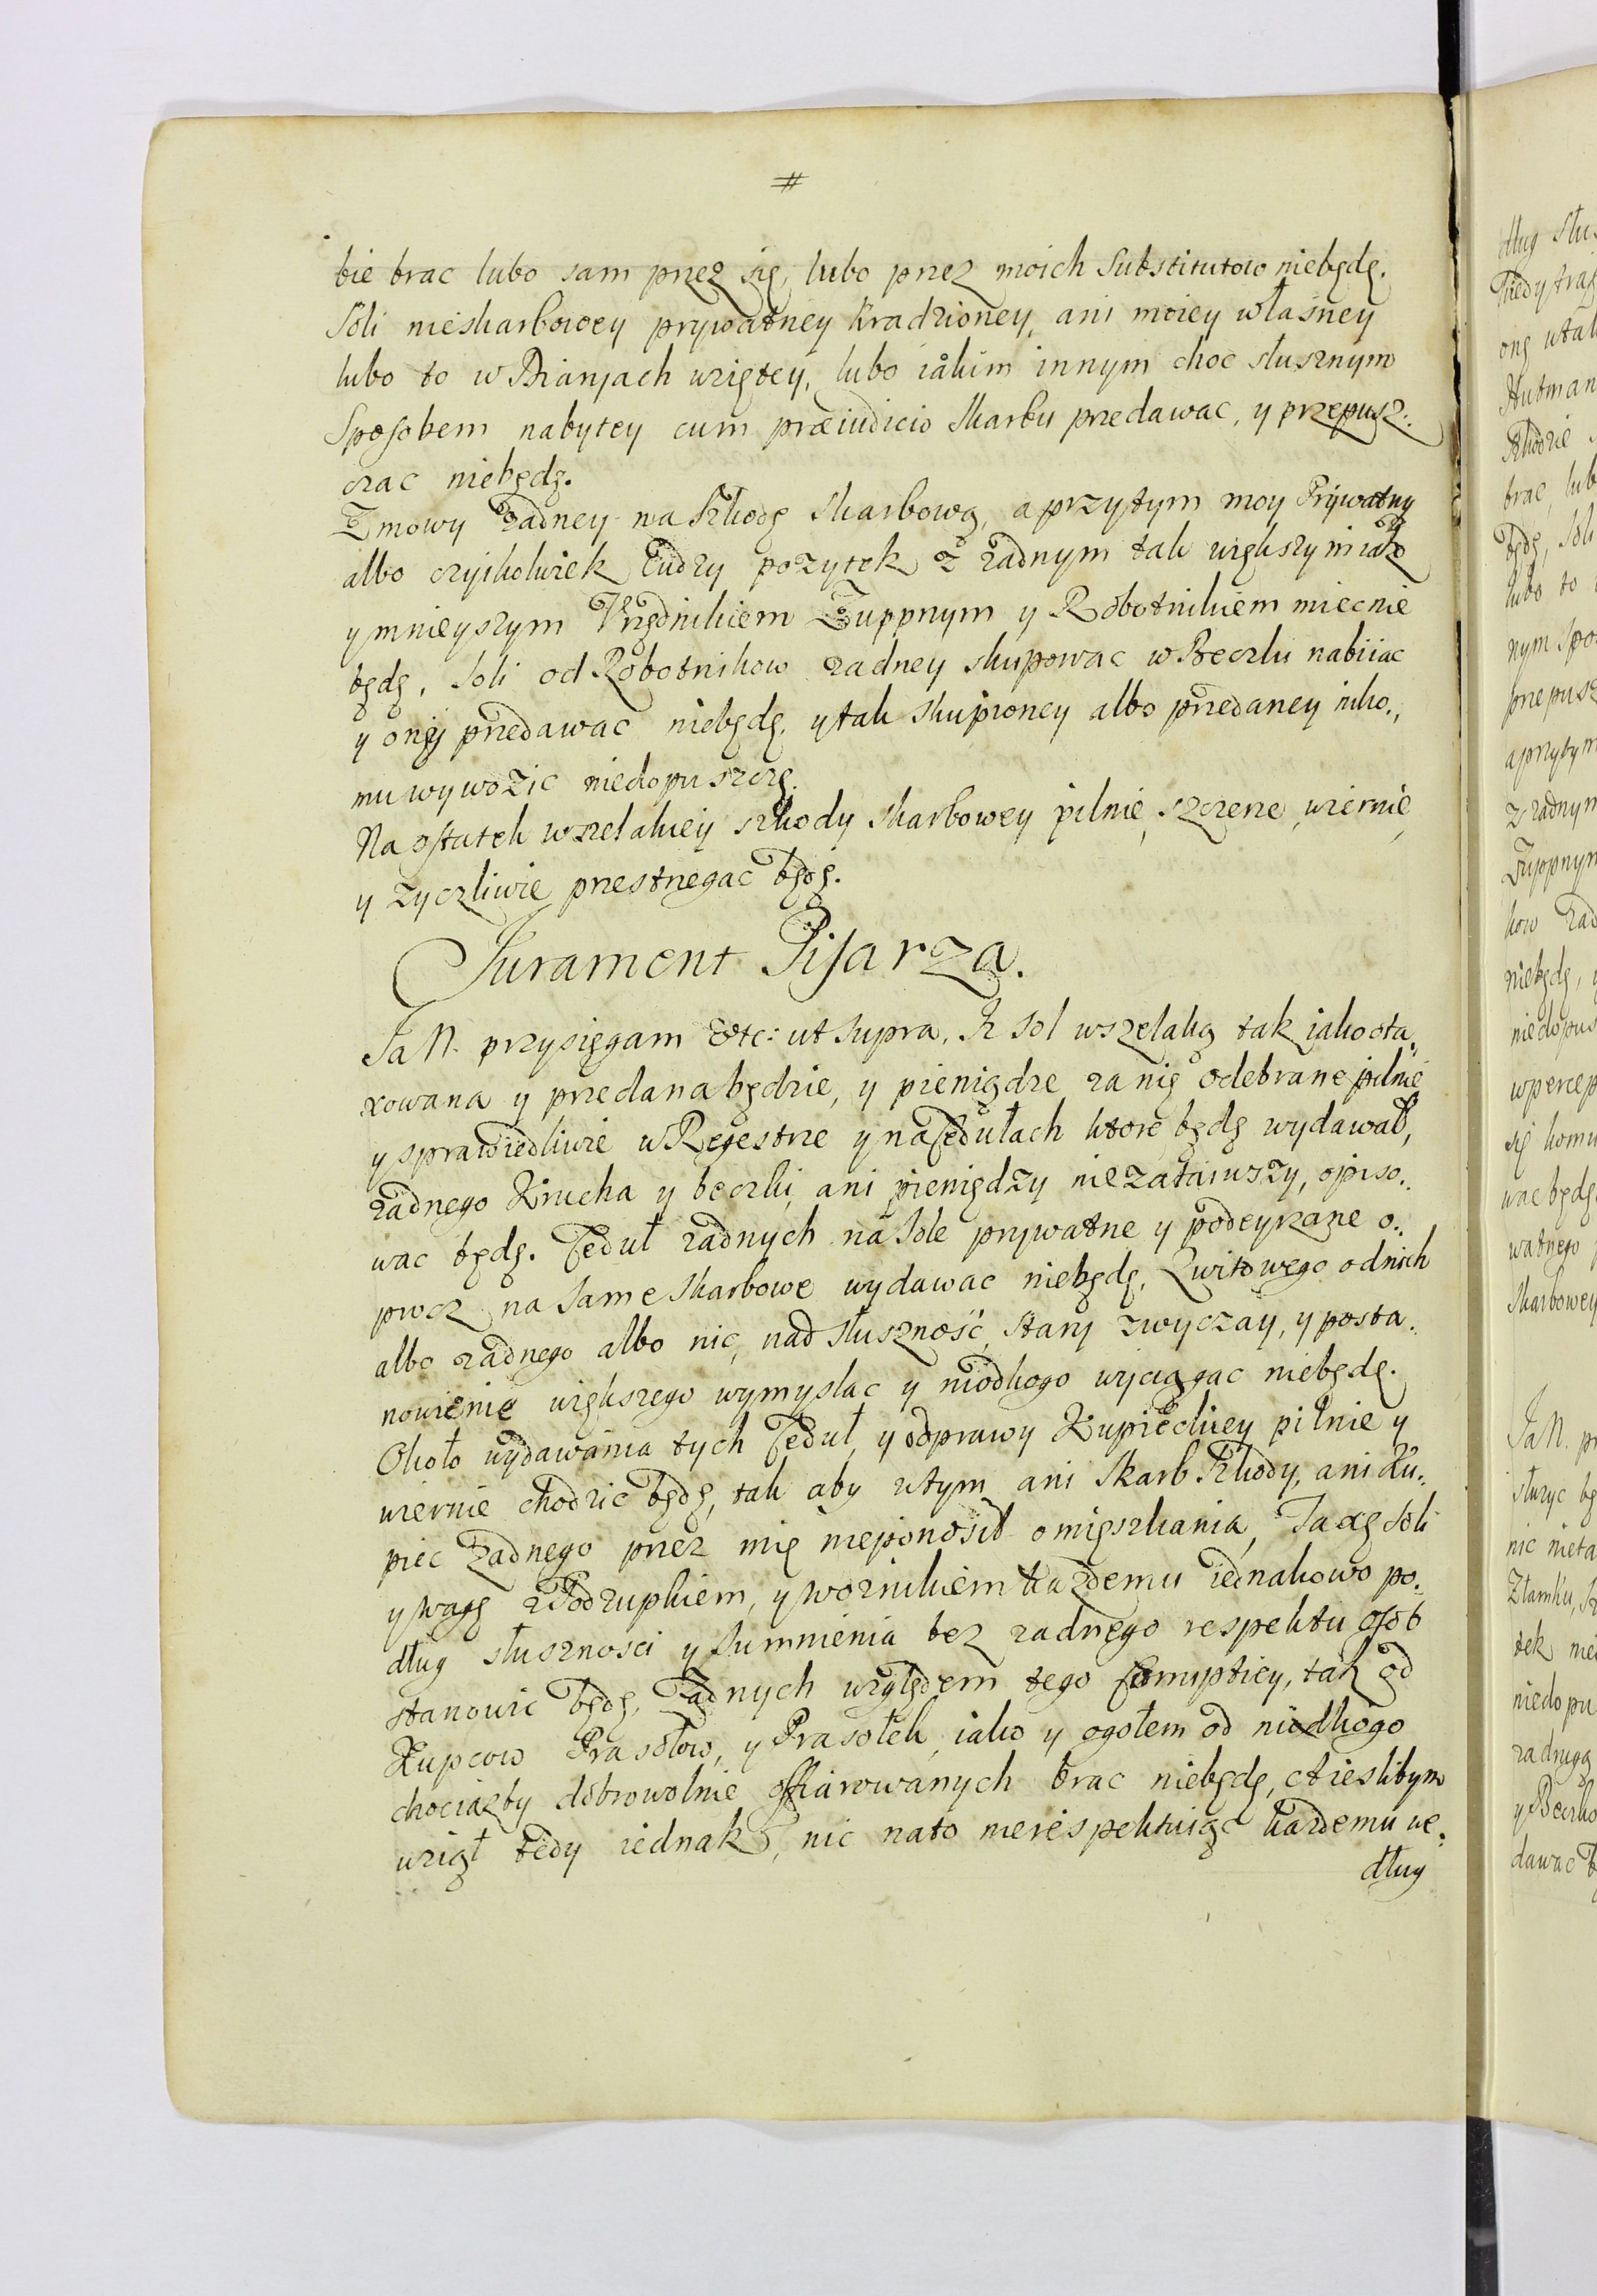 #
bie brac lubo sam przez się, lubo przez moich Substitutow niebędę.
Soli nieskarbowey prywatney Kradzioney, ani moiey własney
lubo to w Bianjach wziętey, lubo iakim innym choc słusznym
Sposobem nabytey cum præiudicio Skarbu przedawac, y przepusz:
czac niebędę.
Zmowy Żadney na Szkodę Skarbową, a przytym moy Prywatny
albo czyikolwiek Cudzy pożytek z żadnym tak większym iako
y mnieyszym Vrzędnikiem Żuppnym y Robotnikiem miec nie
będę, Soli od Robotnikow żadney skupowac w Beczki nabiiac
y oney przedawac niebędę, y tak skupioney albo przedaney niko.,
mu wywozic niedopuszczę.
Na ostatek wszelakiey szkody Skarbowey pilnie, szczerze, wiernie,
y życzliwie przestrzegac będę.
Jurament Pisarza.
Ja N. przysięgam &tc: ut supra. Iz Sol wszelaką tak iako ota.,
xowana y przedana będzie, y pieniądze za nię odebrane pilnie
y sprawiedliwie w Regestrze y na Cedułach ktore będę wydawał,
żadnego Krucha y beczki, ani pieniędzy nie zataiwszy, opiso..
wac będę. Ceduł żadnych na Sole prywatne y podeyrzane o..
procz na same Skarbowe wydawac niebędę. Kwitowego od nich
albo żadnego albo nic, nad słuszność, stary zwyczay, y posta..
nowienie większego wymyslac y niodkogo wyciągac niebędę.
Około wydawania tych Ceduł, y odprawy Kupieckiey pilnie y
wiernie chodzic będę, tak aby w tym ani Skarb Szkody, ani Ku..
piec żadnego przez mię nieponosił omięszkania, Taxę Soli
y Wagę z Podżupkiem, y woznikiem każdemu iednakowo po..
dług słusznosci y Sumnienia bez żadnego respektu osób
stanowic będę. Żadnych względem tego Corruptiey, tak od
Kupcow Prasołow, y Prasołek, iako y ogołem od niodkogo
chociażby dobrowolnie offiarowanych brac niebędę, a ieslibym
wziął tedy iednak, nic na to nierespektuiąc każdemu we.,
dług